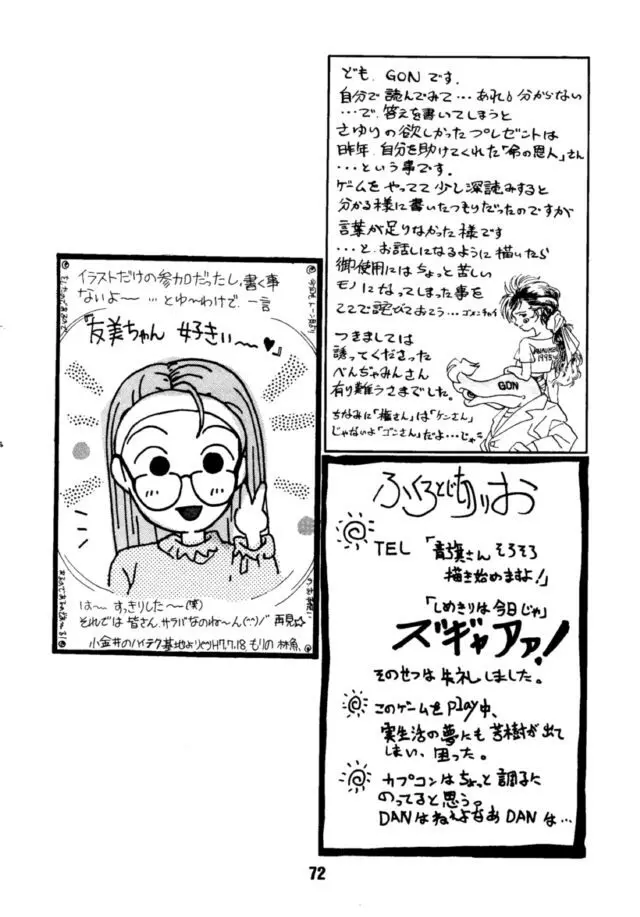 ども、GONです。
自分で読んでみて…あれ!分からない
…で、答えを書いてしまうと
さゆりの欲しかったプレゼントは
昨年、自分を助けてくれた「命の恩人」さん
…という事です。
ゲームをやってて少し深読みすると
分かる様に書いたつもりだったのですが
言葉が足りなかった様です
…と、お話しになるように描いたら
御使用にはちょっと苦しい
モノになってしまった事を
ここで詫びておこう…ゴメンチャイ
つきましては
誘ってくださった
べんぢゃみんさん
有り難うさまでした。
ちなみに「権さん」は「ケンさん」
じゃないよ「ゴンさん」だよ…じゃ
1995
GON
イラストだけの参加だったし、書く事
ないよ〜 …とゆ〜わけで、一言
『友美ちゃん 好きぃ〜〜♥』
は〜 すっきりした〜(笑)
それでは皆さん、サラバなのね〜ん(^^)/ 再見☆
小金井のハイテク基地より H7.7.18 もりの 林魚
ふくろとじきりお
TEL 「青旗さんそろそろ
描き始めますよ!」
「しめきりは今日じゃ」
ズギャアァ!
そのせつは失礼しました。
このゲームをplay中、
実生活の夢にも苦樹が出て
しまい、困った。
カプコンはちょっと調子に
のってると思う。
DANはねえよなあDANは…
72